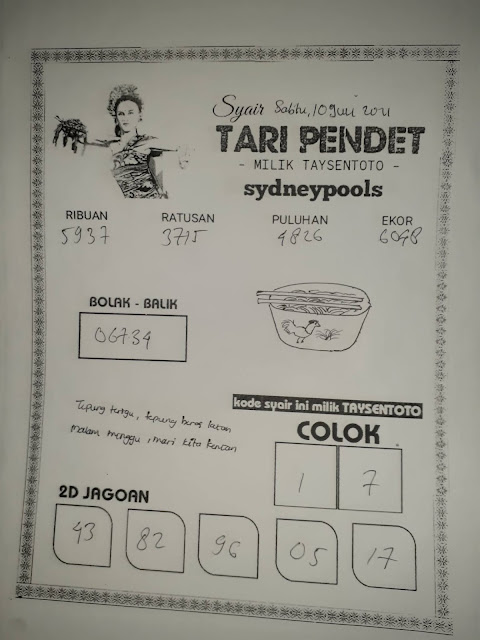 Syair Sabtu, 10 Juli 2021
TARI PENDET
- MILIK TAYSENTOTO -
sydneypools
RIBUAN RATUSAN PULUHAN EKOR
5937 3715 4826 6048
BOLAK - BALIK
06734
Tepung terigu, tepung beras ketan
Malam minggu, mari kita kencan
kode syair ini milik TAYSENTOTO
COLOK
1 7
2D JAGOAN
43 82 96 05 17